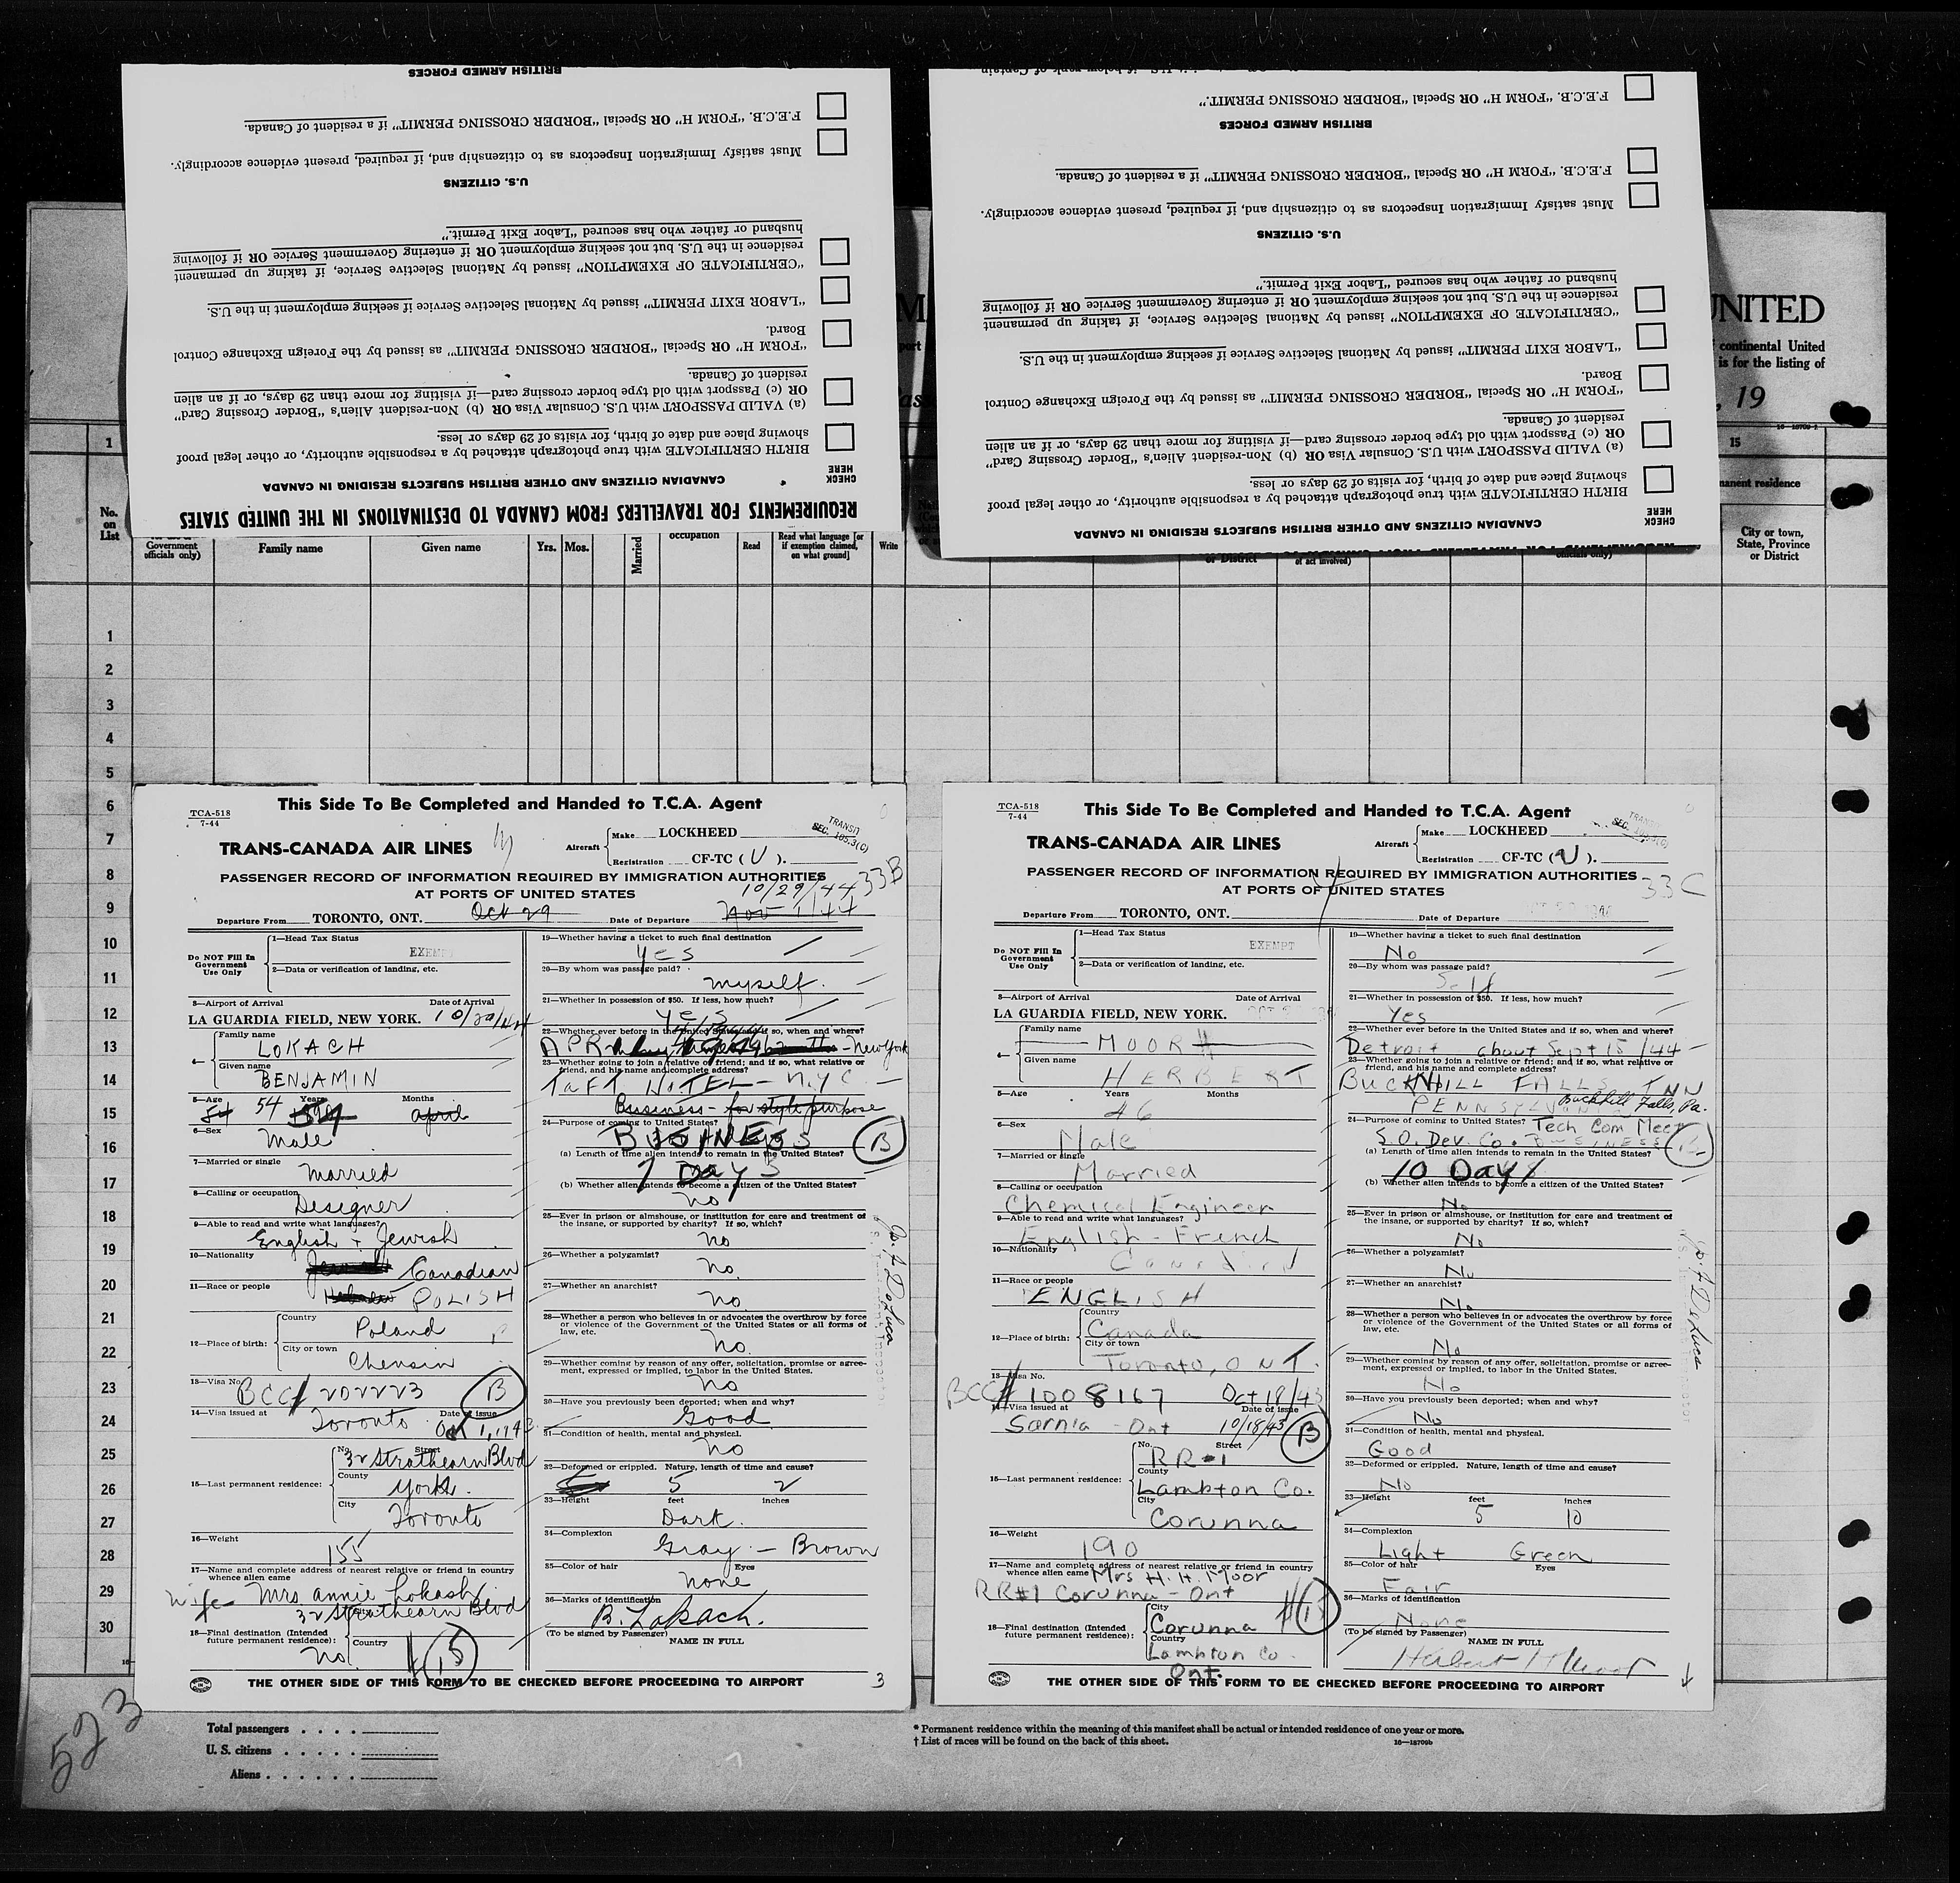 REQUIREMENTS FOR TRAVELLERS FROM CANADA TO DESTINATIONS IN THE UNITED STATES
CANADIAN CITIZENS AND OTHER BRITISH SUBJECTS RESIDING IN CANADA
CHECK
HERE
BIRTH CERTIFICATE with true photograph attached by a responsible authority, or other legal proof
showing place and date of birth, for visits of 29 days or less.
(a) VALID PASSPORT with U.S. Consular Visa OR (b) Non-resident Alien's "Border Crossing Card"
OR (c) Passport with old type border crossing card—if visiting for more than 29 days, or if an alien
resident of Canada.
"FORM H" OR Special "BORDER CROSSING PERMIT" as issued by the Foreign Exchange Control
Board.
"LABOR EXIT PERMIT" issued by National Selective Service if seeking employment in the U.S.
"CERTIFICATE OF EXEMPTION" issued by National Selective Service, if taking up permanent
residence in the U.S. but not seeking employment OR if entering Government Service OR if following
husband or father who has secured "Labor Exit Permit."
U.S. CITIZENS
Must satisfy Immigration Inspectors as to citizenship and, if required, present evidence accordingly.
F.E.C.B. "FORM H" OR Special "BORDER CROSSING PERMIT" if a resident of Canada.
BRITISH ARMED FORCES
CANADIAN CITIZENS AND OTHER BRITISH SUBJECTS RESIDING IN CANADA
CHECK
HERE
BIRTH CERTIFICATE with true photograph attached by a responsible authority, or other legal proof
showing place and date of birth, for visits of 29 days or less.
(a) VALID PASSPORT with U.S. Consular Visa OR (b) Non-resident Alien's "Border Crossing Card"
OR (c) Passport with old type border crossing card—if visiting for more than 29 days, or if an alien
resident of Canada.
"FORM H" OR Special "BORDER CROSSING PERMIT" as issued by the Foreign Exchange Control
Board.
"LABOR EXIT PERMIT" issued by National Selective Service if seeking employment in the U.S.
"CERTIFICATE OF EXEMPTION" issued by National Selective Service, if taking up permanent
residence in the U.S. but not seeking employment OR if entering Government Service OR if following
husband or father who has secured "Labor Exit Permit."
U.S. CITIZENS
Must satisfy Immigration Inspectors as to citizenship and, if required, present evidence accordingly.
F.E.C.B. "FORM H" OR Special "BORDER CROSSING PERMIT" if a resident of Canada.
BRITISH ARMED FORCES
F.E.C.B. "FORM H" OR Special "BORDER CROSSING PERMIT."
UNITED
continental United
is for the listing of
, 19
1
15
permanent residence
No.
on
List
Government
officials only)
Family name
Given name
Yrs.
Mos.
Married
occupation
Read
Read what language [or
if exemption claimed,
on what ground]
Write
or District
of act involved)
officials only)
City or town,
State, Province
or District
1
2
3
4
5
6
7
8
9
10
11
12
13
14
15
16
17
18
19
20
21
22
23
24
25
26
27
28
29
30
This Side To Be Completed and Handed to T.C.A. Agent
TCA-518
7-44
TRANS-CANADA AIR LINES
Aircraft
Make LOCKHEED
Registration CF-TC (U).
TRANSIT
SEC. 105.3(C)
33B
PASSENGER RECORD OF INFORMATION REQUIRED BY IMMIGRATION AUTHORITIES
AT PORTS OF UNITED STATES
10/29/44
Departure From TORONTO, ONT. Oct 29 Date of Departure Nov 1/44
Do NOT Fill In
Government
Use Only
1—Head Tax Status
EXEMPT
2—Data or verification of landing, etc.
3—Airport of Arrival Date of Arrival
LA GUARDIA FIELD, NEW YORK. 10/29/44
4—
Family name
LOKACH
Given name
BENJAMIN
5—Age Years Months
54 54 April
6—Sex
Male
7—Married or single
Married
8—Calling or occupation
Designer
9—Able to read and write what languages?
English + Jewish
10—Nationality
Canadian
11—Race or people
Hebrew POLISH
12—Place of birth:
Country
Poland
City or town
Chensin
13—Visa No.
BCC# 202223 B
14—Visa issued at Date of issue
Toronto Oct 1, 1943
15—Last permanent residence:
No. Street
32 Strathearn Blvd
County
York.
City
Toronto
16—Weight
155
17—Name and complete address of nearest relative or friend in country
whence alien came
wife Mrs Annie Lokash
32 Strathearn Blvd
18—Final destination (Intended
future permanent residence):
City
Country
no
15
19—Whether having a ticket to such final destination
Yes
20—By whom was passage paid?
myself.
21—Whether in possession of $50. If less, how much?
yes
22—Whether ever before in the United States and if so, when and where?
APR New York
23—Whether going to join a relative or friend; and if so, what relative or
friend, and his name and complete address?
TAFT HOTEL — N.Y.C. —
Business - for style purpose
24—Purpose of coming to United States?
BUSINESS B
(a) Length of time alien intends to remain in the United States?
7 Days
(b) Whether alien intends to become a citizen of the United States?
no
25—Ever in prison or almshouse, or institution for care and treatment of
the insane, or supported by charity? If so, which?
no
26—Whether a polygamist?
no.
27—Whether an anarchist?
no.
28—Whether a person who believes in or advocates the overthrow by force
or violence of the Government of the United States or all forms of
law, etc.
no.
29—Whether coming by reason of any offer, solicitation, promise or agree-
ment, expressed or implied, to labor in the United States?
no
30—Have you previously been deported; when and why?
Good
31—Condition of health, mental and physical.
no
32—Deformed or crippled. Nature, length of time and cause?
5 2
33—Height feet inches
Dark.
34—Complexion
Gray — Brown
35—Color of hair Eyes
none
36—Marks of identification
B. Lokach.
(To be signed by Passenger) NAME IN FULL
Jo. F. DeLuca
THE OTHER SIDE OF THIS FORM TO BE CHECKED BEFORE PROCEEDING TO AIRPORT
3
This Side To Be Completed and Handed to T.C.A. Agent
TCA-518
7-44
TRANS-CANADA AIR LINES
Aircraft
Make LOCKHEED
Registration CF-TC (U).
33C
PASSENGER RECORD OF INFORMATION REQUIRED BY IMMIGRATION AUTHORITIES
AT PORTS OF UNITED STATES
Departure From TORONTO, ONT. Date of Departure
Do NOT Fill In
Government
Use Only
1—Head Tax Status
EXEMPT
2—Data or verification of landing, etc.
3—Airport of Arrival Date of Arrival
LA GUARDIA FIELD, NEW YORK.
4—
Family name
MOOR
Given name
HERBERT
5—Age Years Months
46
6—Sex
Male
7—Married or single
Married
8—Calling or occupation
Chemical Engineer
9—Able to read and write what languages?
English - French
10—Nationality
Canadian
11—Race or people
ENGLISH
12—Place of birth:
Country
Canada
City or town
Toronto, ONT.
13—Visa No.
BCC# 1008167 Oct 18/43
14—Visa issued at Date of issue
Sarnia - Ont 10/18/43 B
15—Last permanent residence:
No. Street
RR-1
County
Lambton Co.
City
Corunna
16—Weight
190
17—Name and complete address of nearest relative or friend in country
whence alien came Mrs H. H. Moor
RR#1 Corunna - Ont
18—Final destination (Intended
future permanent residence):
City
Corunna
Country
Lambton Co.
Ont.
15
19—Whether having a ticket to such final destination
No
20—By whom was passage paid?
Self
21—Whether in possession of $50. If less, how much?
Yes
22—Whether ever before in the United States and if so, when and where?
Detroit about Sept 15/44
23—Whether going to join a relative or friend; and if so, what relative or
friend, and his name and complete address?
BUCKHILL FALLS INN
PENNSYLVANIA Buckhill Falls, Pa.
24—Purpose of coming to United States? Tech Com Meet
S.O. Dev. Co. BUSINESS
(a) Length of time alien intends to remain in the United States?
10 Days
(b) Whether alien intends to become a citizen of the United States?
No
25—Ever in prison or almshouse, or institution for care and treatment of
the insane, or supported by charity? If so, which?
No
26—Whether a polygamist?
No
27—Whether an anarchist?
No
28—Whether a person who believes in or advocates the overthrow by force
or violence of the Government of the United States or all forms of
law, etc.
No
29—Whether coming by reason of any offer, solicitation, promise or agree-
ment, expressed or implied, to labor in the United States?
No
30—Have you previously been deported; when and why?
No
31—Condition of health, mental and physical.
Good
32—Deformed or crippled. Nature, length of time and cause?
No
33—Height feet inches
5 10
34—Complexion
Light Green
35—Color of hair Eyes
Fair
36—Marks of identification
None
(To be signed by Passenger) NAME IN FULL
Herbert H Moor
Jo. F. DeLuca
THE OTHER SIDE OF THIS FORM TO BE CHECKED BEFORE PROCEEDING TO AIRPORT
523
Total passengers
U. S. citizens
Aliens
* Permanent residence within the meaning of this manifest shall be actual or intended residence of one year or more.
† List of races will be found on the back of this sheet.
16—18709b